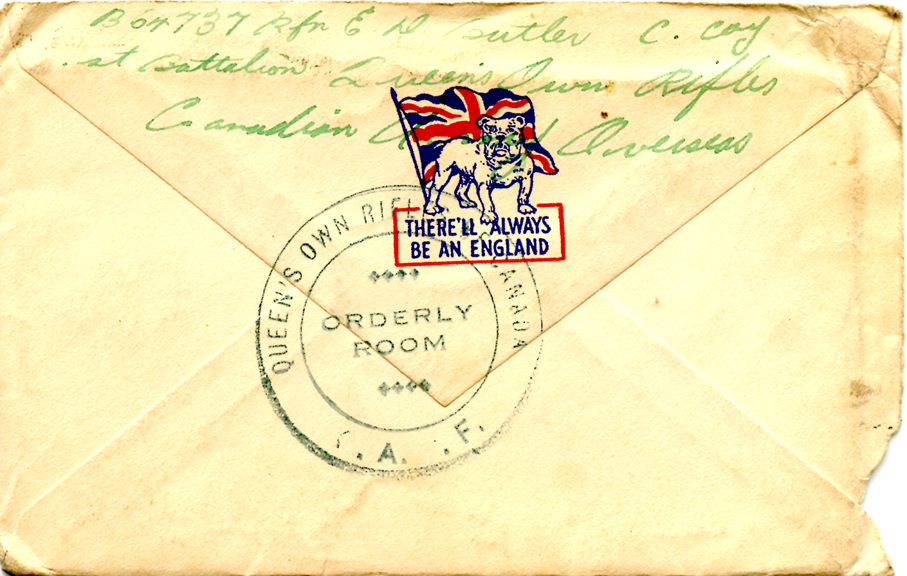 B64737 Rfn E D Butler C. Coy
1st Battalion Queen's Own Rifles
Canadian Overseas
THERE'LL ALWAYS
BE AN ENGLAND
QUEEN'S OWN RIFLES CANADA
ORDERLY
ROOM
A. F.